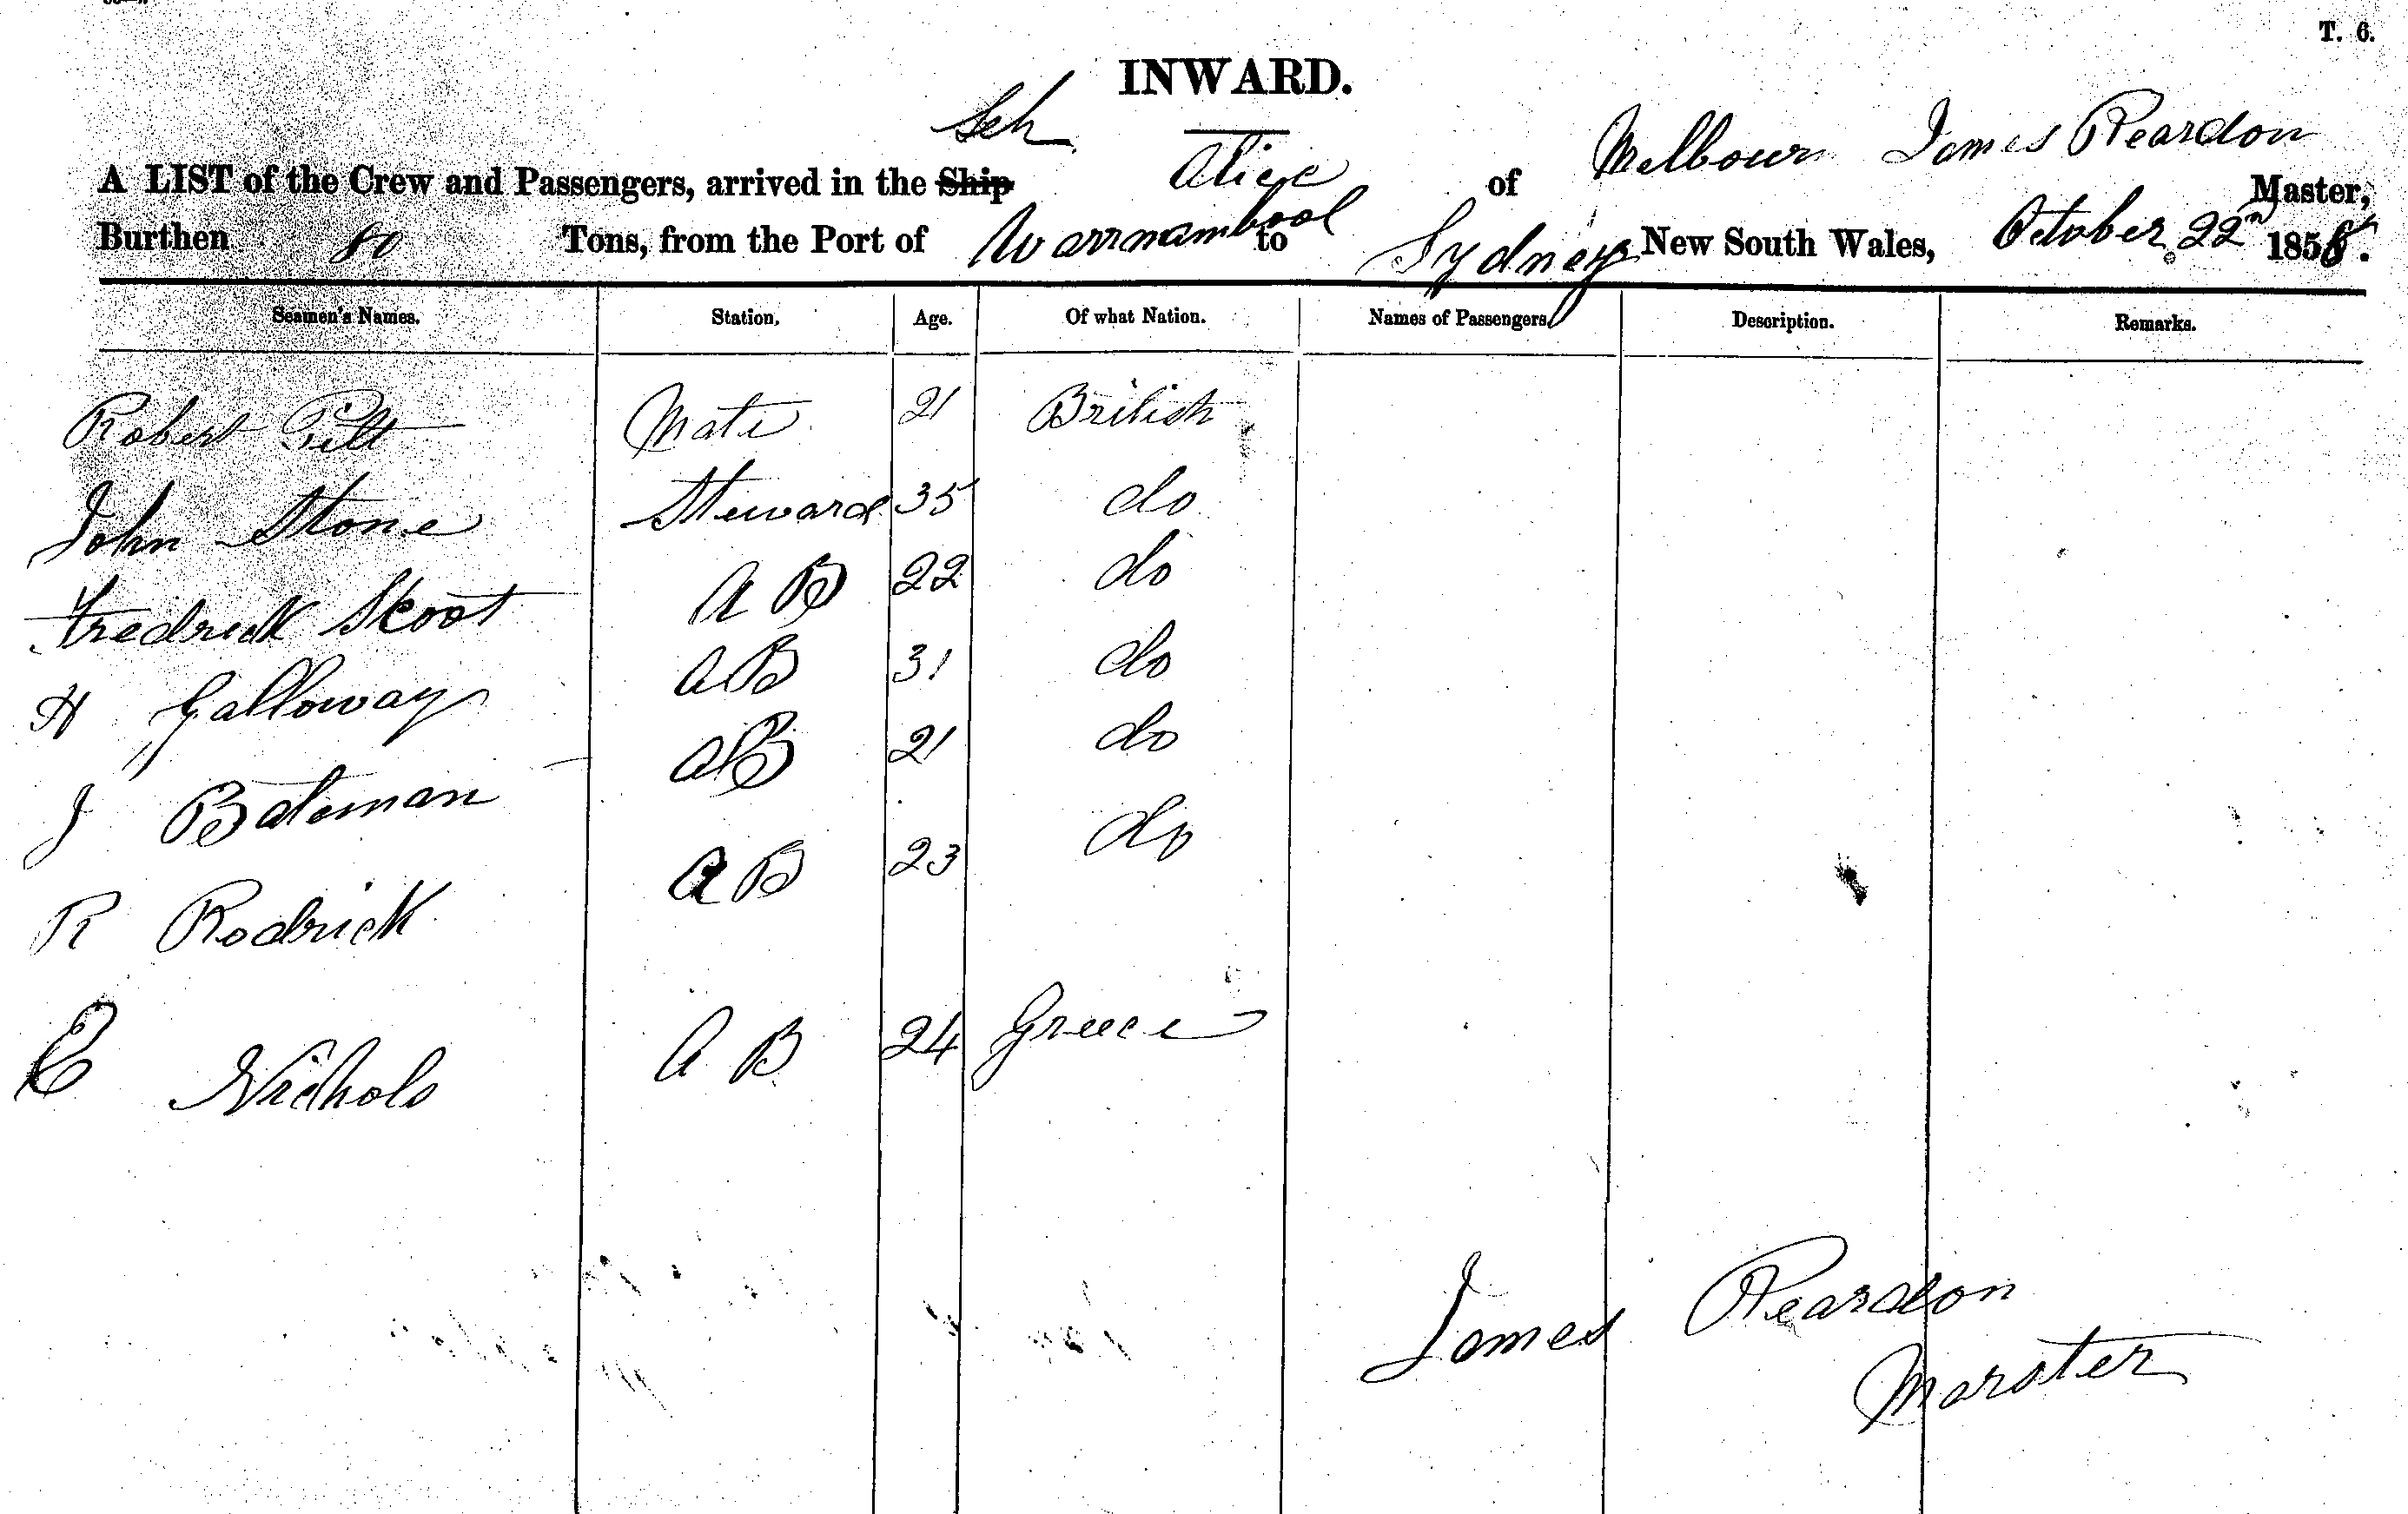 T. 6.
INWARD.
Sch
A LIST of the Crew and Passengers, arrived in the Ship Alice of Melbourn James Reardon Master,
Burthen 80 Tons, from the Port of Warrnambool to Sydney New South Wales, October 22nd 1858.
Seamen's Names. Station. Age. Of what Nation. Names of Passengers. Description. Remarks.
Robert Pilt Mate 21 British
John Stone Steward 35 do
Fredrick Scoot A B 22 do
H Galloway A B 31 do
J Bateman A B 21 do
R Rodrick A B 23 do
E Nichols A B 24 Greece
James Reardon
Marster